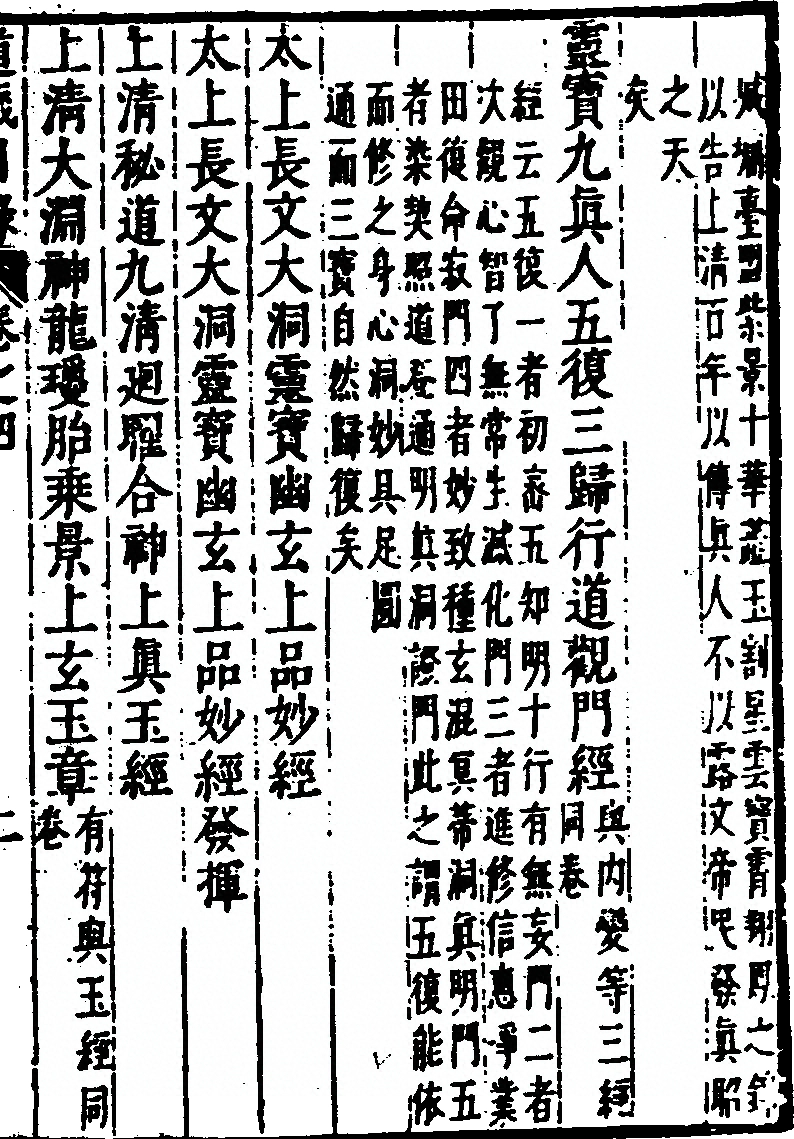 臺盟 景十華蓋玉 星雲寶霄 之
以告上清百年以傳眞人不以露文帝 發眞
之天
矣
靈寶九眞人五復三歸行道觀門經
與内變等三經
同卷
經云五復一者初 五知明十行有無妄門二者
次觀心智了無常生滅化門三者進修信惠淨業
田復命寂門四者妙致種玄混冥蒂洞眞明門五
者染契照道 通明眞洞證門此之謂五復能依
而修之身心洞妙具足圓
通而三寶自然歸復矣
太上長文大洞靈寶幽玄上品妙經
太上長文大洞靈寶幽玄上品妙經發揮
上清秘道九清廻曜合神上眞玉經
上清大淵神龍瓊胎乘景上玄玉章
有符與玉經同
卷
道藏目錄 卷之四 二